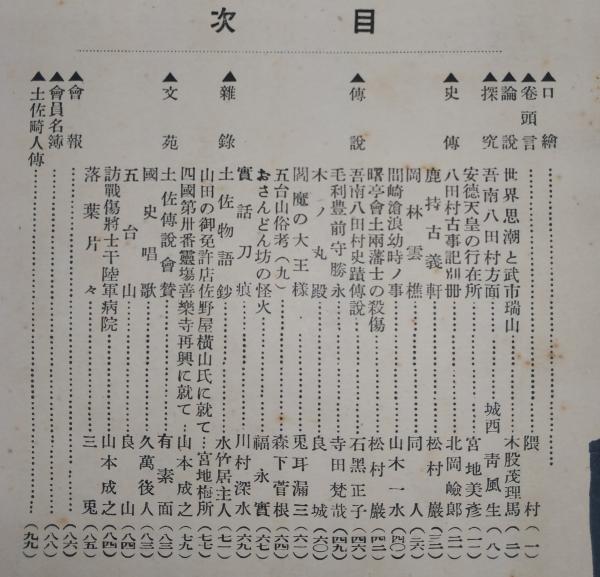 目次
▲口繪
▲卷頭言 隈村 (一)
▲論說 世界思潮と武市瑞山 木股茂理馬 (二)
▲探究 吾南八田村方面 城西 靑風生 (八)
安德天皇の行在所 宮地美彥 (一一)
▲史傳 八田村古事記別冊 北岡鹼郎 (二一)
鹿持古義軒 松村巖 (三二)
岡林雲樵 同人 (三六)
間崎滄浪幼時ノ事 山木一水 (四〇)
曙亭會土兩藩士の殺傷 松村巖 (四二)
▲傳說 吾南八田村史蹟傳說 石黑正子 (四六)
毛利豐前守勝永 寺田梵哉 (四九)
木ノ丸殿 良城 (六〇)
閻魔の大王樣 兎耳漏三 (六一)
五台山俗考(九) 森下菅根 (六四)
おさんどん坊の怪火 福永實 (六七)
實話刀痕 川村深水 (六九)
▲雜錄 土佐物語鈔 水竹居主人 (七一)
山田の御免許店佐野屋橫山氏に就て 宮地梅所 (七七)
四國第卅番靈場善樂寺再興に就て 山本成之 (七九)
▲文苑 土佐傳說會贊 有素面 (八三)
國史唱歌 久萬後人 (八三)
五台山 良山 (八四)
訪戰傷將士于陸軍病院 山本成之 (八四)
落葉片々 三兎 (八五)
▲會報 (八六)
▲會員名簿 (八八)
▲土佐畸人傳 (九九)